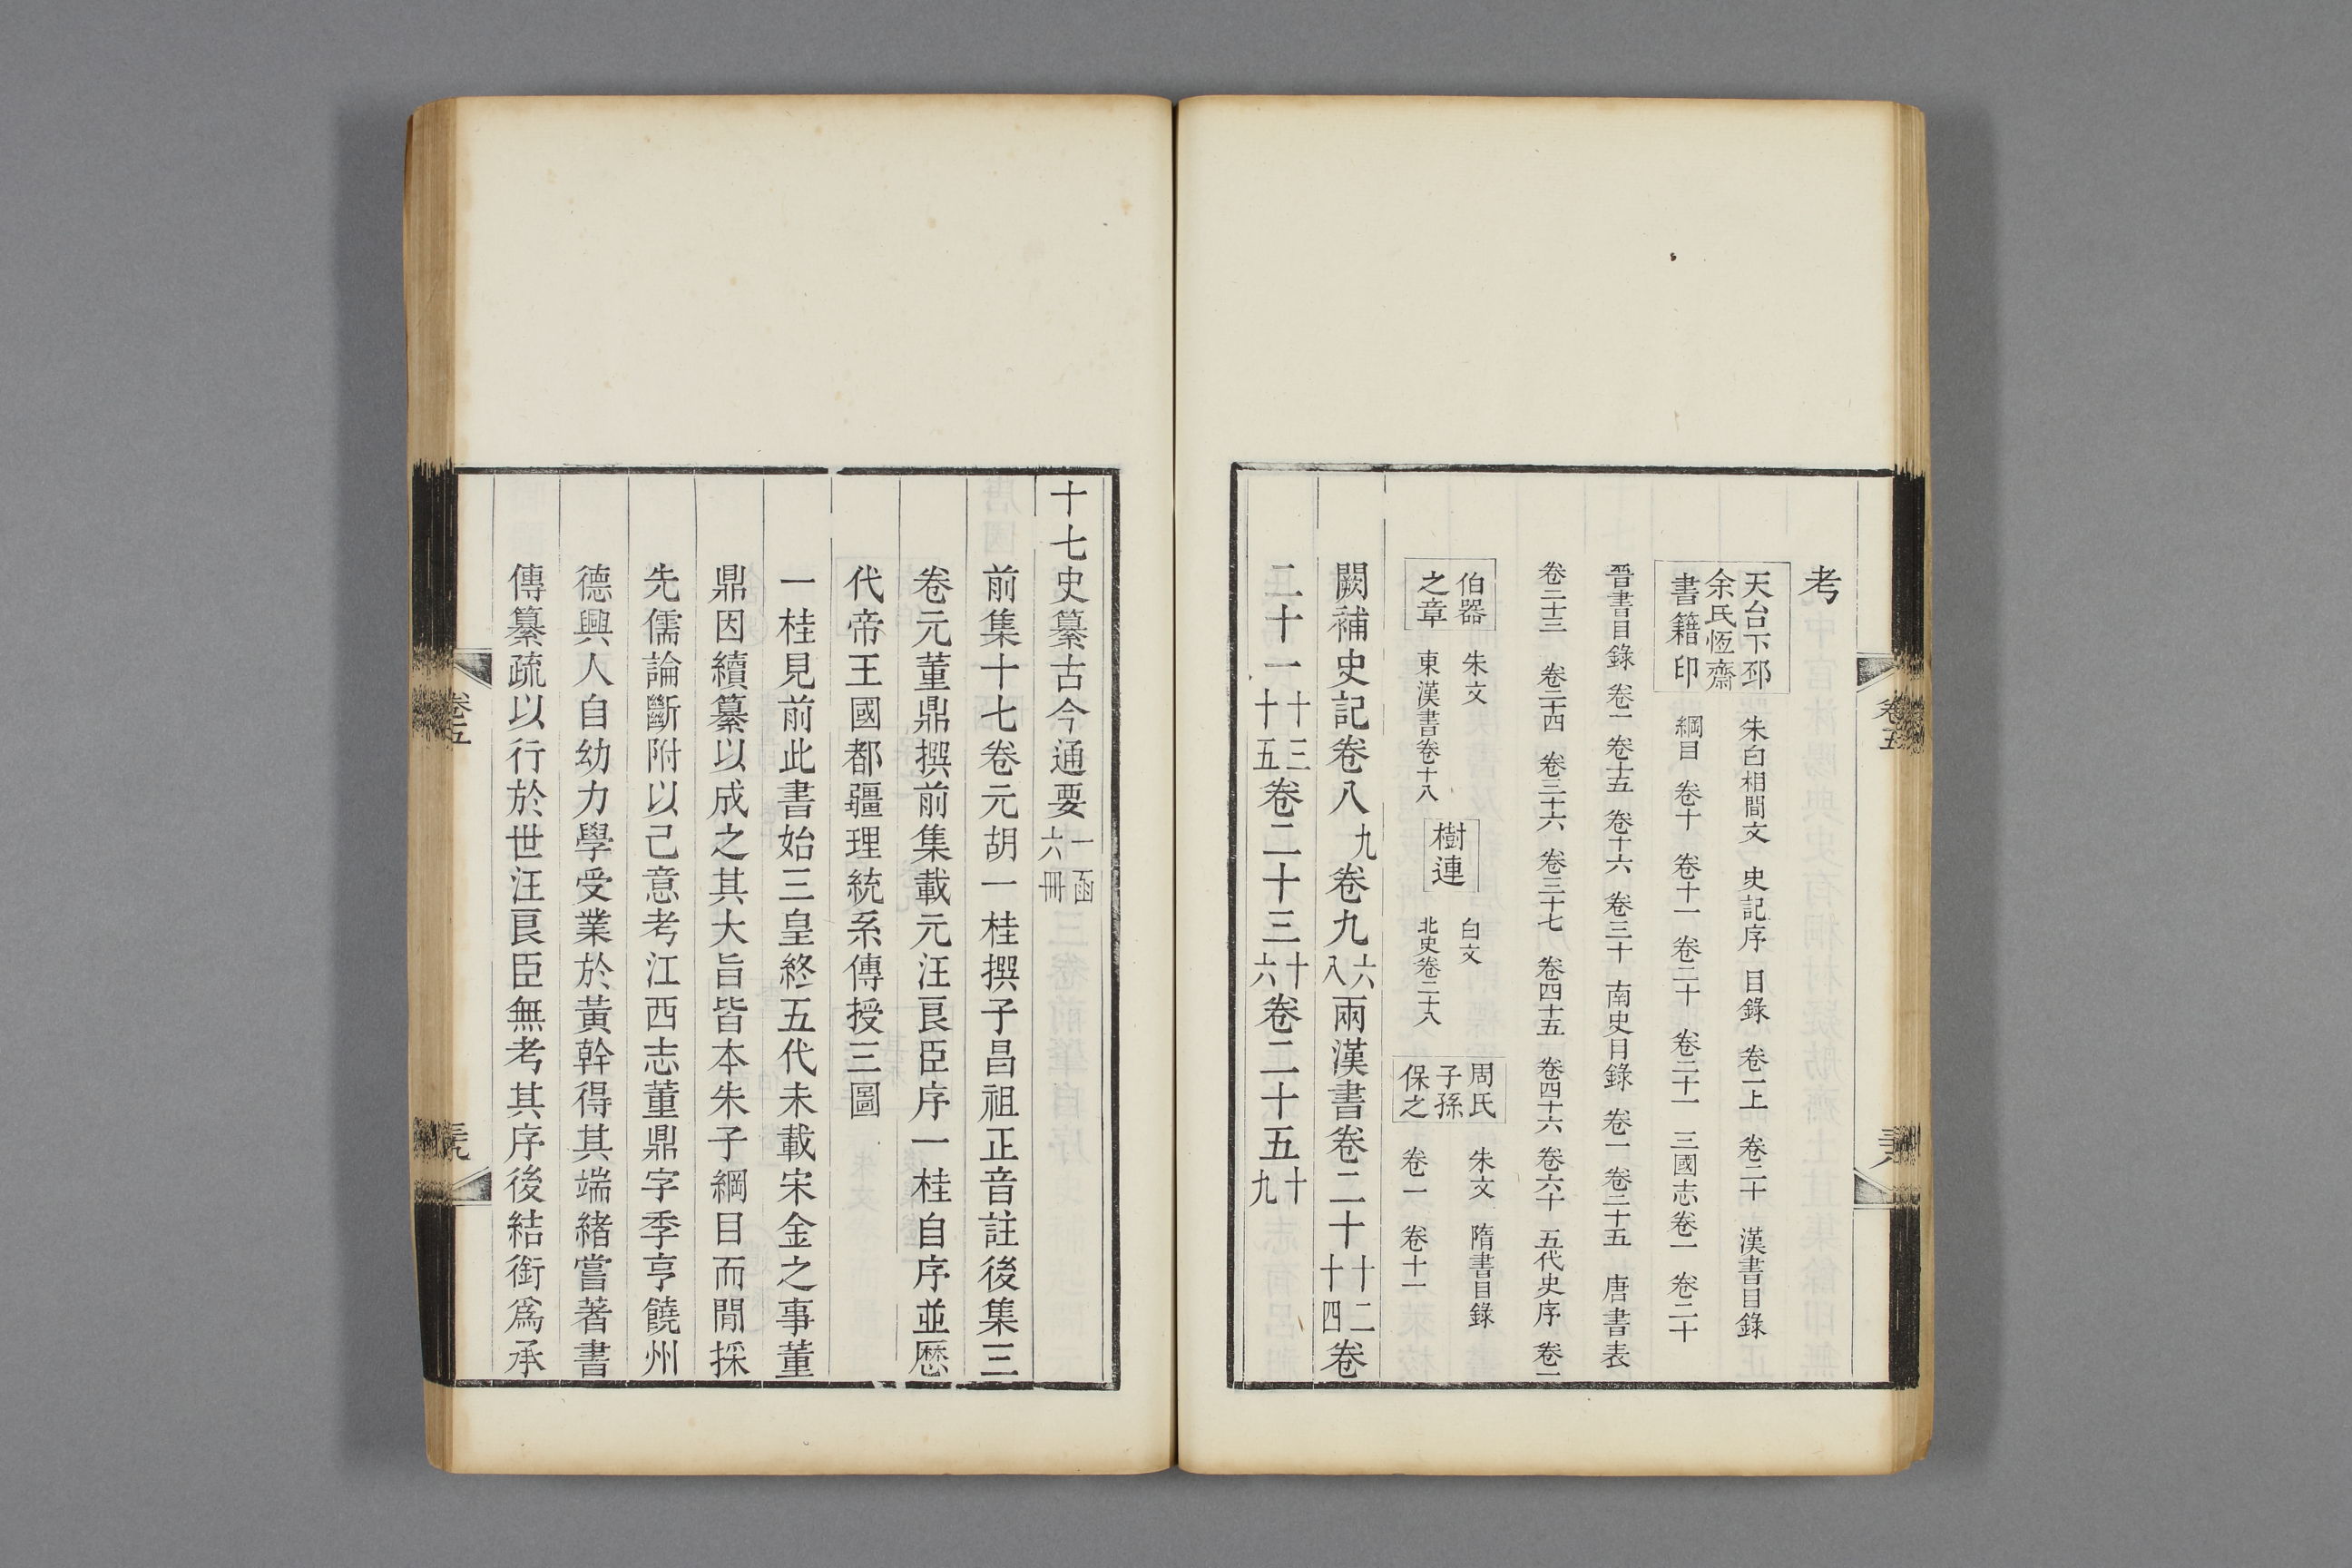 考
天台下邳
余氏恆齋
書籍印
朱白相間文 史記序 目錄 卷一上 卷二十 漢書目錄
綱目 卷十 卷十一 卷二十 卷二十一 三國志卷一 卷二十
晉書目錄 卷一 卷十五 卷十六 卷三十 南史目錄 卷一 卷二十五 唐書表
卷二十三 卷二十四 卷三十六 卷三十七 卷四十五 卷四十六 卷六十 五代史序 卷一
伯器
之章
朱文
東漢書卷十八
樹連
白文
北史卷二十八
周氏
子孫
保之
朱文 隋書目錄
卷一 卷十一
闕補史記卷八九卷九六八兩漢書卷二十十二十四卷
二十一十三十五卷二十三十六卷二十五十九
卷五
十七史纂古今通要一函六冊
前集十七卷元胡一桂撰子昌祖正音註後集三
卷元董鼎撰前集載元汪良臣序一桂自序並歷
代帝王國都疆理統系傳授三圖
一桂見前此書始三皇終五代未載宋金之事董
鼎因續纂以成之其大旨皆本朱子綱目而間採
先儒論斷附以己意考江西志董鼎字季亨饒州
德興人自幼力學受業於黃幹得其端緒嘗著書
傳纂疏以行於世汪良臣無考其序後結銜爲承
卷五